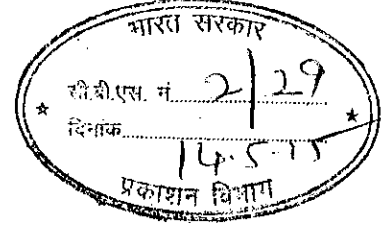 भारत सरकार
सी.बी.एस. नं. 2/29
दिनांक 14.5.15
प्रकाशन विभाग